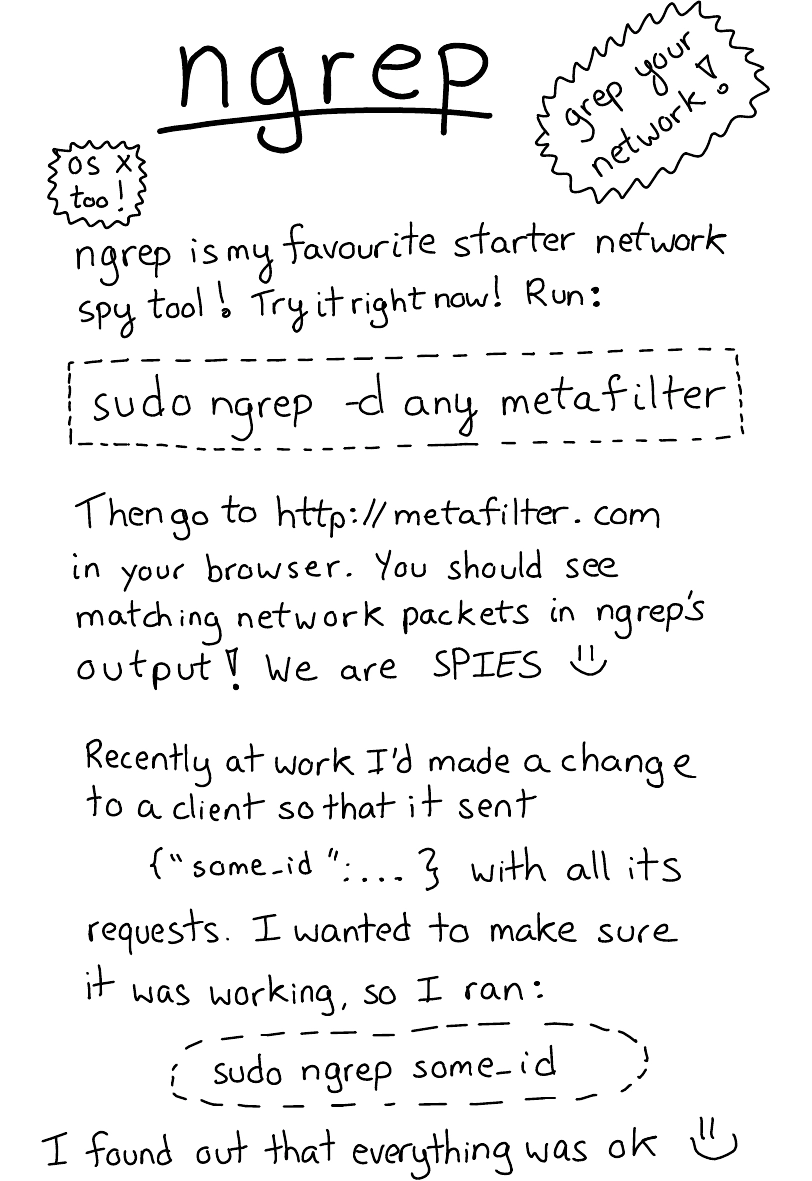 ngrep
grep your
network!
OS X
too!
ngrep is my favourite starter network
spy tool! Try it right now! Run:
sudo ngrep -d any metafilter
Then go to http://metafilter.com
in your browser. You should see
matching network packets in ngrep's
output! We are SPIES
Recently at work I'd made a change
to a client so that it sent
{"some_id":...} with all its
requests. I wanted to make sure
it was working, so I ran:
sudo ngrep some_id
I found out that everything was ok